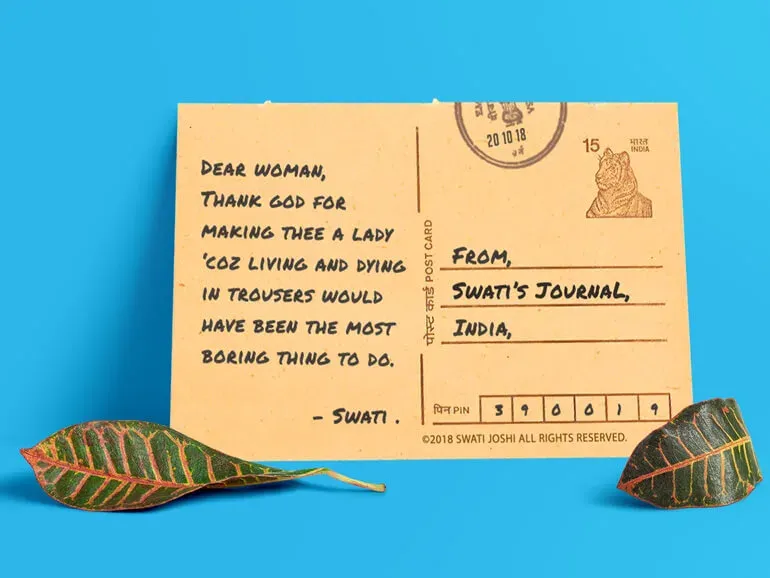 DEAR WOMAN,
THANK GOD FOR
MAKING THEE A LADY
'COZ LIVING AND DYING
IN TROUSERS WOULD
HAVE BEEN THE MOST
BORING THING TO DO.
- SWATI.
पोस्ट कार्ड POST CARD
20 10 18
15 भारत
INDIA
FROM,
SWATI'S JOURNAL,
INDIA,
पिन PIN 3 9 0 0 1 9
©2018 SWATI JOSHI ALL RIGHTS RESERVED.